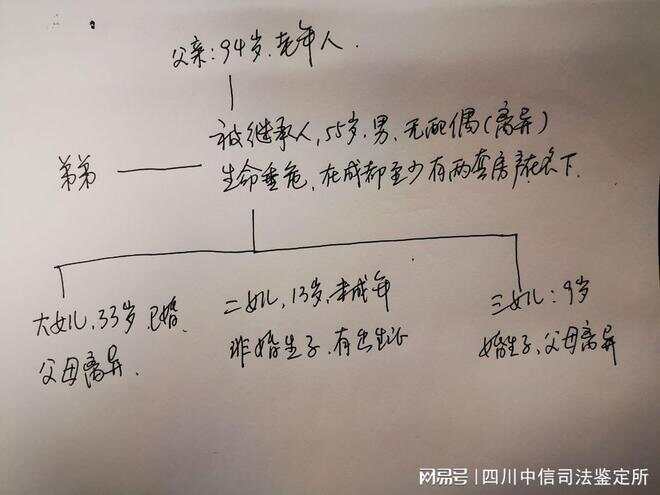 父亲:94岁,老年人.
被继承人,55岁,男,无配偶(离异)
弟弟
生命垂危,在成都至少有两套房产在名下.
大女儿,33岁,已婚,
父母离异.
二女儿,13岁,未成年
非婚生子,有出生证
三女儿:9岁
婚生子,父母离异
网易号 | 四川中信司法鉴定所